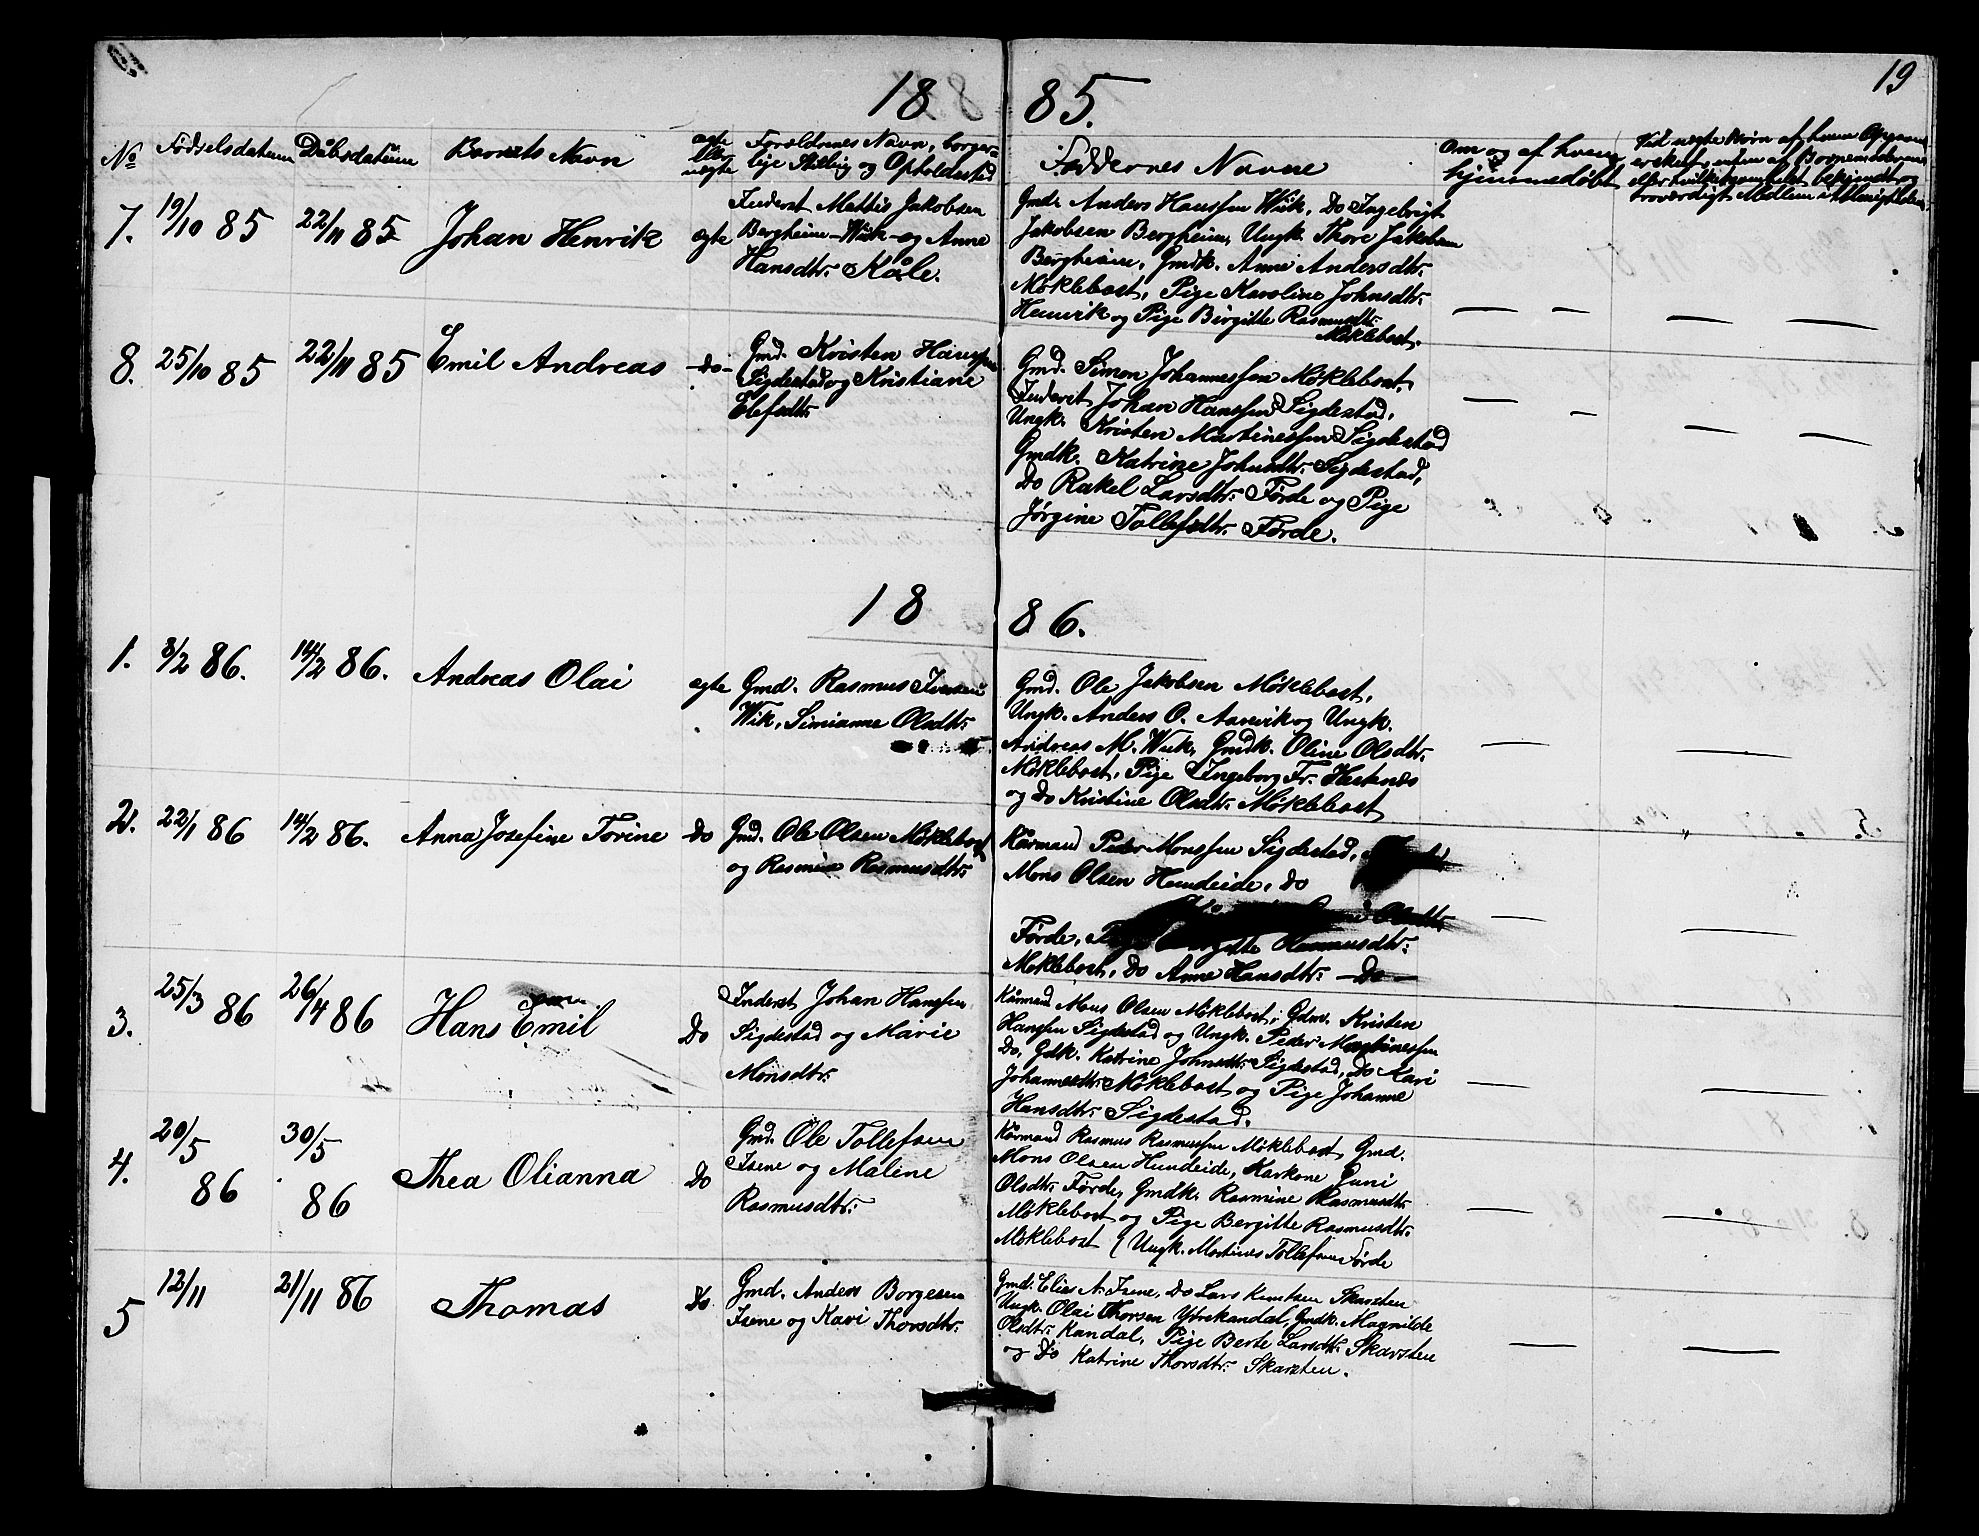 19
18 85.
No Fødselsdatum Dåbsdatum Barnets Navn ægte eller uægte Forældrenes Navn, borgerlige Stilling og Opholdssted Faddernes Navne Om og af hvem hjemmedøbt
7. 19/10 85 22/11 85 Johan Henrik ægte
Inderst Mathis Jakobsen
Bergheim - Wiik - og Anne
Hansdtr. Kåle.
Gmd. Anders Hanssen Wiik, Do Ingebrigt
Jakobsen Bergheim, Ungk. Thore Jakobsen
Bergheim, Gmdk. Anne Andersdtr.
Møklebost, Pige Karoline Johnsdtr.
Hennvik og Pige Birgitte Rasmusdtr.
Møklebost.
8. 25/10 85 22/11 85 Emil Andreas -Do-
Gmd. Kristen Hanssen
Sigdestad og Kristiane
Elefsdtr.
Gmd. Simon Johannessen Møklebost,
Inderst Johan Hanssen Sigdestad,
Ungk. Kristen Martinessen Sigdestad
Gmdk. Katrine Johnsdtr. Sigdestad,
Do Rakel Larsdtr. Førde og Pige
Jørgine Tollefsdtr. Førde.
18 86.
1. 3/2 86. 14/2 86. Andreas Olai ægte
Gmd. Rasmus Iversen
Wik, Simianna Olsdtr.
Gmd. Ole Jakobsen Møklebost,
Ungk. Anders O. Aarevik og Ungk.
Andreas M. Wiik, Gmdk. Oline Olsdtr.
Møklebost, Pige Ingeborg Fr. Hestenes
og Do Kristine Olsdtr. Møklebost
2. 22/1 86 14/2 86. Anna Josefine Torine Do
Gmd. Ole Olsen Møklebost
og Rasmine Rasmusdtr.
Kårmand Peder Monssen Sigdestad,
Mons Olsen Hundeide, Do
Olsdtr.
Førde, Pige Birgitte Rasmusdtr.
Møklebost, Do Anne Hansdtr. -Do-
3. 25/3 86 26/4 86 Hans Emil Do
Inderst Johan Hanssen
Sigdestad og Marie
Monsdtr.
Kårmand Mons Olsen Møklebost, Gdm. Kristen
Hanssen Sigdestad og Ungk. Peder Martinessen
Do, Gdk. Katrine Johnsdtr. Sigdestad, Do Kari
Johannesdtr. Møklebost og Pige Johanne
Hansdtr. Sigdestad.
4. 20/5 86 30/5 86 Thea Olianna Do
Gmd. Ole Tollefsen
Isene og Maline
Rasmusdtr.
Kårmand Rasmus Rasmussen Møklebost, Gmd.
Mons Olsen Hundeide, Karkone Guni
Olsdtr. Førde, Gmdk. Rasmine Rasmusdtr.
Møklebost og Pige Bergitte Rasmusdtr.
Møklebost / Ungk. Martines Tollefsen Førde
5 12/11 21/11 86 Thomas Do
Gmd. Anders Borgesen
Isene og Kari Thorsdtr.
Gmd. Elias A. Isene, Do Lars Knutsen Skarsten
Ungk. Olai Thorsen Ytrekandal, Gmdk. Magnilde
Olsdtr. Kandal, Pige Berte Larsdtr. Skarsten
og Do Katrine Thorsdtr. Skarsten.